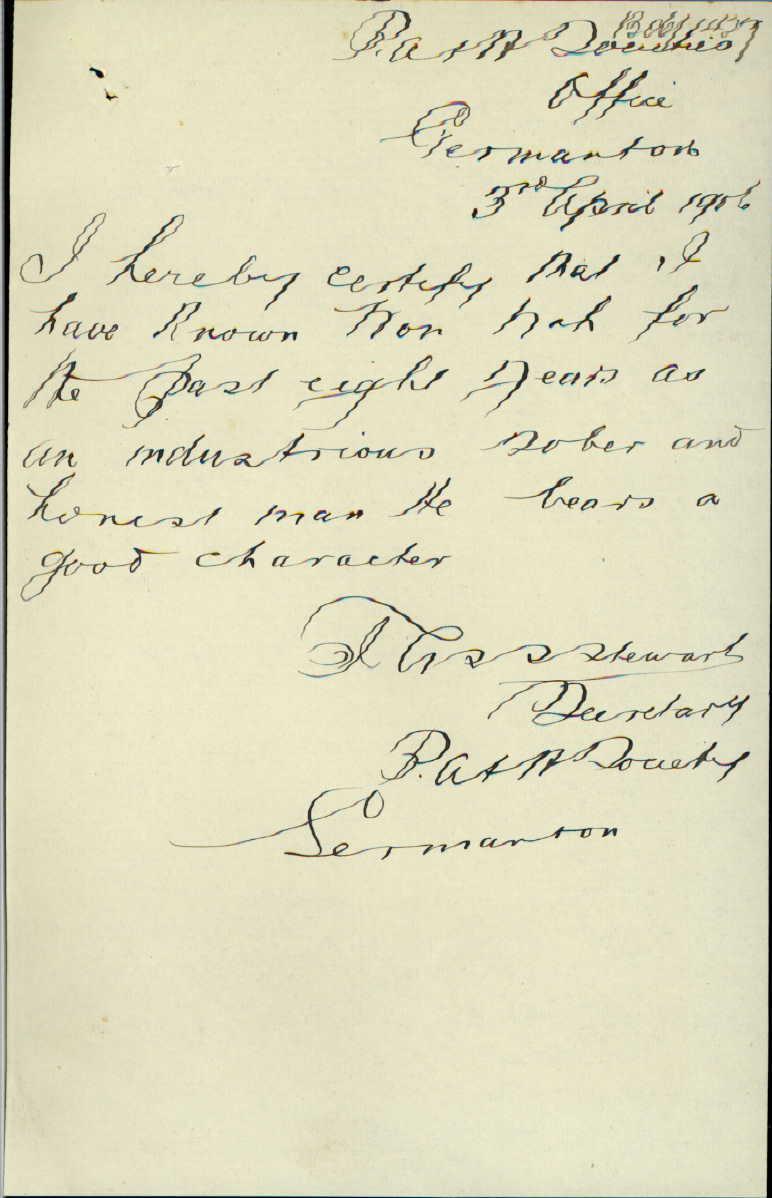 P. A & H Societies
Office
Germanton
3rd April 1906
I hereby certify that I
have Known Hon Nah for
the Past eight Years as
an industrious sober and
honest man He bears a
good character
Stewart
Secretary
P. A & H Society
Germanton